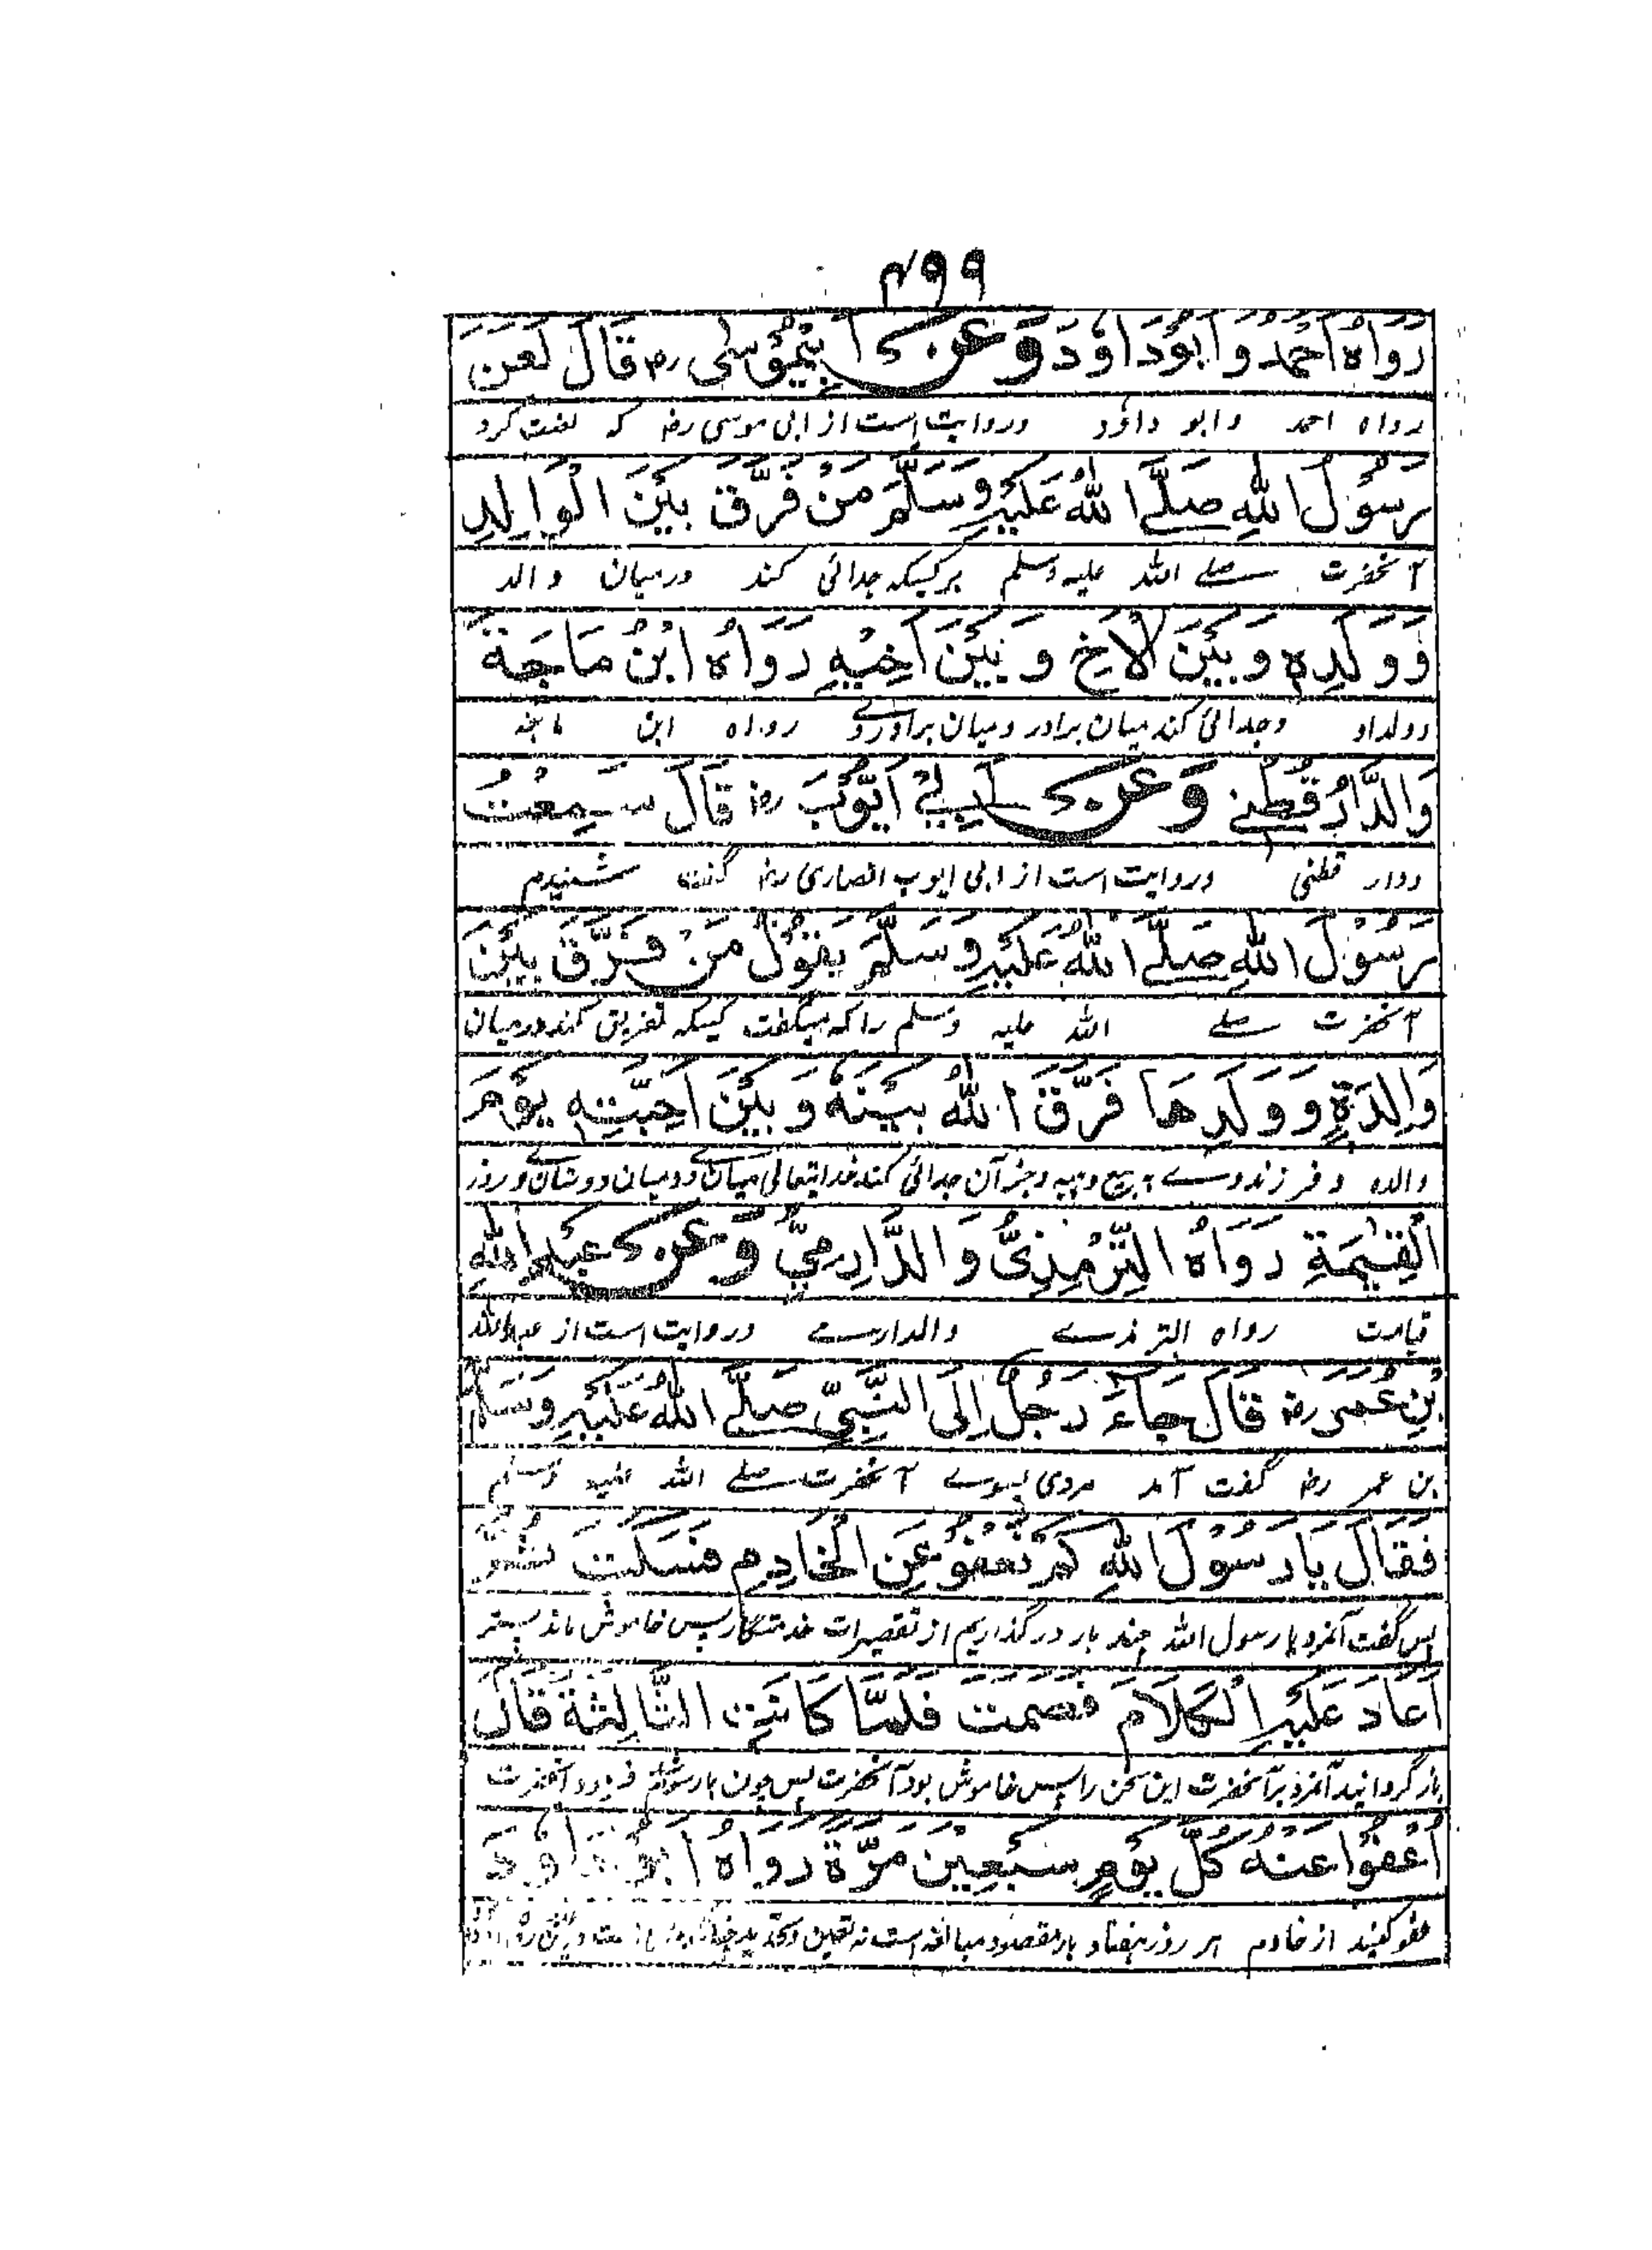 ۴۹۹
رَوَاهُ اَحْمَدُ وَ اَبُوْدَاوٗدَ وَعَنْ اَبِيْ مُوْسٰى رض قَالَ لَعَنَ
رواه احمد وابو داؤد وروایت است از ابی موسی رضہ کہ لعنت کرد
رَسُوْلُ اللّٰهِ صَلَّے اللّٰهُ عَلَيْهِ وَسَلَّمَ مَنْ فَرَّقَ بَيْنَ الْوَالِدِ
آنحضرت صلے اللہ علیہ وسلم ہر کسیکہ جدائی کند درمیان والد
وَوَلَدِهٖ وَبَيْنَ الْاَخِ وَبَيْنَ اَخِيْهِ رَوَاهُ ابْنُ مَاجَةَ
وولد او وجدائی کند میان برادر ومیان برادر وے رواه ابن ماجہ
وَالدَّارُقُطْنِے وَعَنْ اَبِيْ اَيُّوْبَ رض قَالَ سَمِعْتُ
ودار قطنی وروایت است از ابی ایوب انصاری رضہ گفت شنیدم
رَسُوْلَ اللّٰهِ صَلَّے اللّٰهُ عَلَيْهِ وَسَلَّمَ يَقُوْلُ مَنْ فَرَّقَ بَيْنَ
آنحضرت صلے اللہ علیہ وسلم را کہ میگفت کسیکہ تفریق کند درمیان
وَالِدَةٍ وَوَلَدِهَا فَرَّقَ اللّٰهُ بَيْنَهٗ وَبَيْنَ اَحِبَّتِهٖ يَوْمَ
والده وفرزند وے بہ بیع وہبہ وجز آن جدائی کند خدایتعالی میان وے ومیان دوستان وے روز
الْقِيٰمَةِ رَوَاهُ التِّرْمِذِيُّ وَالدَّارِمِيُّ وَعَنْ عَبْدِ اللّٰهِ
قیامت رواه الترمذے والدارمے وروایت است از عبداللہ
بْنِ عُمَرَ رض قَالَ جَاءَ رَجُلٌ اِلَى النَّبِيِّ صَلَّے اللّٰهُ عَلَيْهِ وَسَلَّمَ
بن عمر رضہ گفت آمد مردی بسوے آنحضرت صلے اللہ علیہ وسلم
فَقَالَ يَا رَسُوْلَ اللّٰهِ كَمْ نَعْفُوْ عَنِ الْخَادِمِ فَسَكَتَ ثُمَّ
پس گفت آنمرد یا رسول اللہ چند بار در گذاریم از تقصیرات خدمتگار پس خاموش ماند پستر
اَعَادَ عَلَيْهِ الْكَلَامَ فَصَمَتَ فَلَمَّا كَانَتِ الثَّالِثَةُ قَالَ
باز گردانید آنمرد بر آنحضرت این سخن را پس خاموش بود آنحضرت پس چون بار سوم فرمود آنحضرت
اُعْفُوْا عَنْهُ كُلَّ يَوْمٍ سَبْعِيْنَ مَرَّةً رَوَاهُ اَبُوْ دَاوٗدَ
عفو کنید از خادم ہر روز ہفتاد بار مقصود مبالغہ است نہ تعین وتحدید